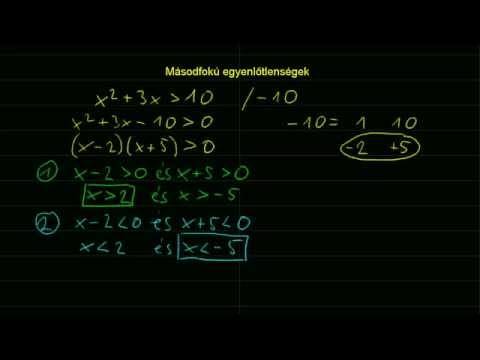 Másodfokú egyenlőtlenségek
x² + 3x > 10 /-10
x² + 3x - 10 > 0 -10 = 1 10
(x-2)(x+5) > 0 -2 +5
1 x-2>0 és x+5>0
x>2 és x>-5
2 x-2<0 és x+5<0
x<2 és x<-5